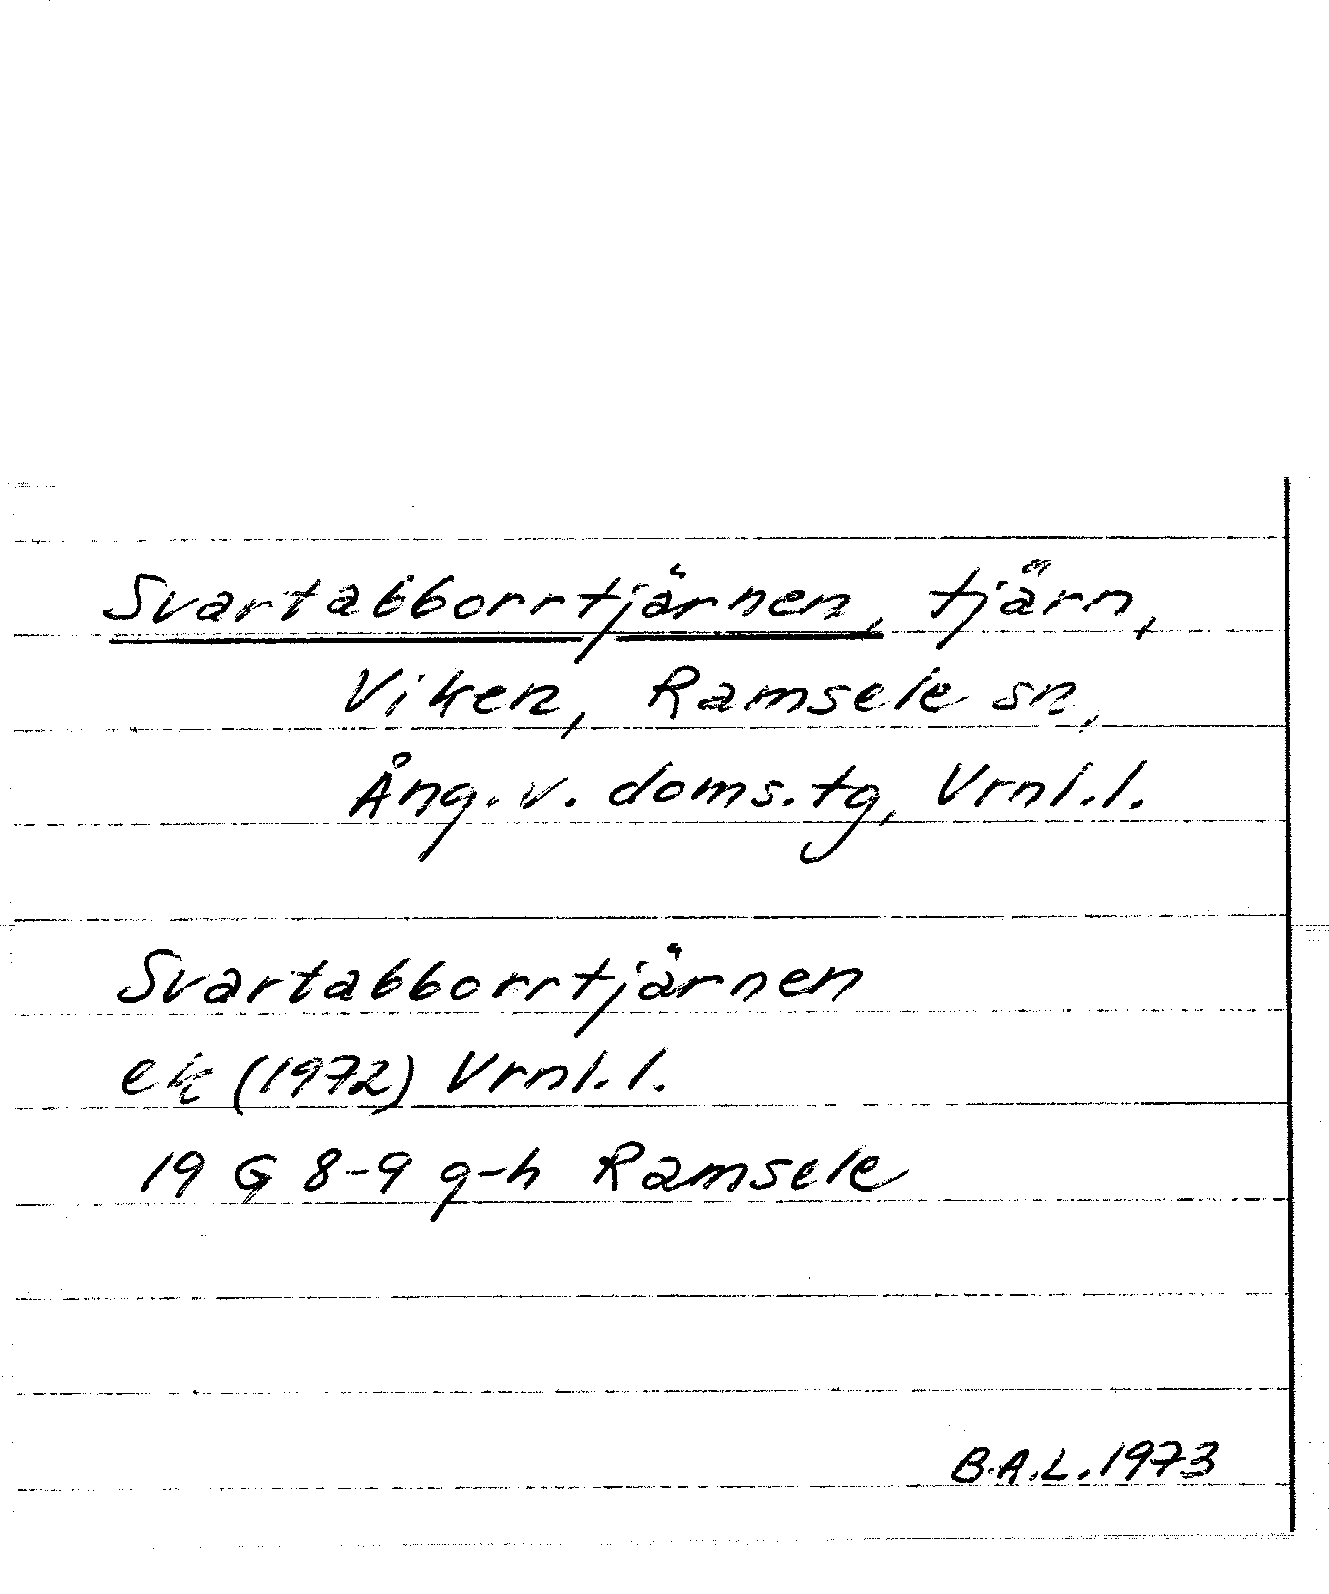 Svartabborrtjärnen, tjärn,
Viken, Ramsele sn,
Ång. v. doms. tg, Vrnl. l.
Svartabborrtjärnen
ek (1972) Vrnl. l.
19 G 8-9 g-h Ramsele
B.A.L. 1973